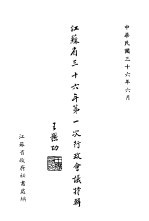 中華民國三十六年六月
江蘇省三十六年第一次行政會議特輯
王懋功
江蘇省政府秘書處編